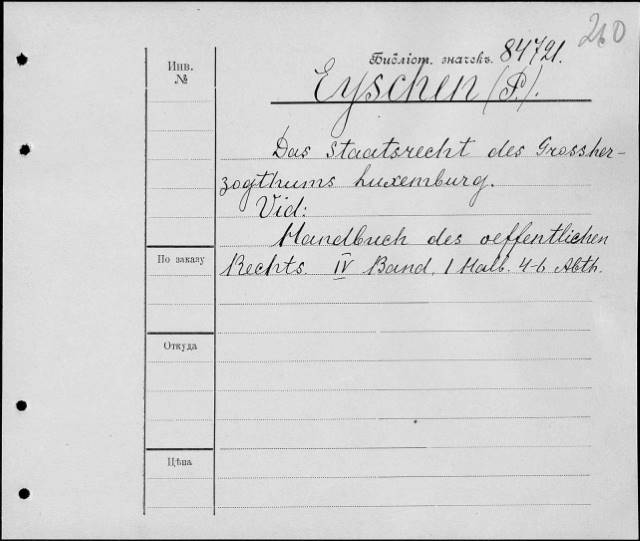 260
Инв.
№
Библіот. значекъ. 84721.
Eyschen (P.).
Das Staatsrecht des Grossher-
zogthums Luxemburg.
Vid:
Handbuch des oeffentlichen
Rechts. IV Band, 1 Halb. 4-6 Abth.
По заказу
Откуда
Цѣна